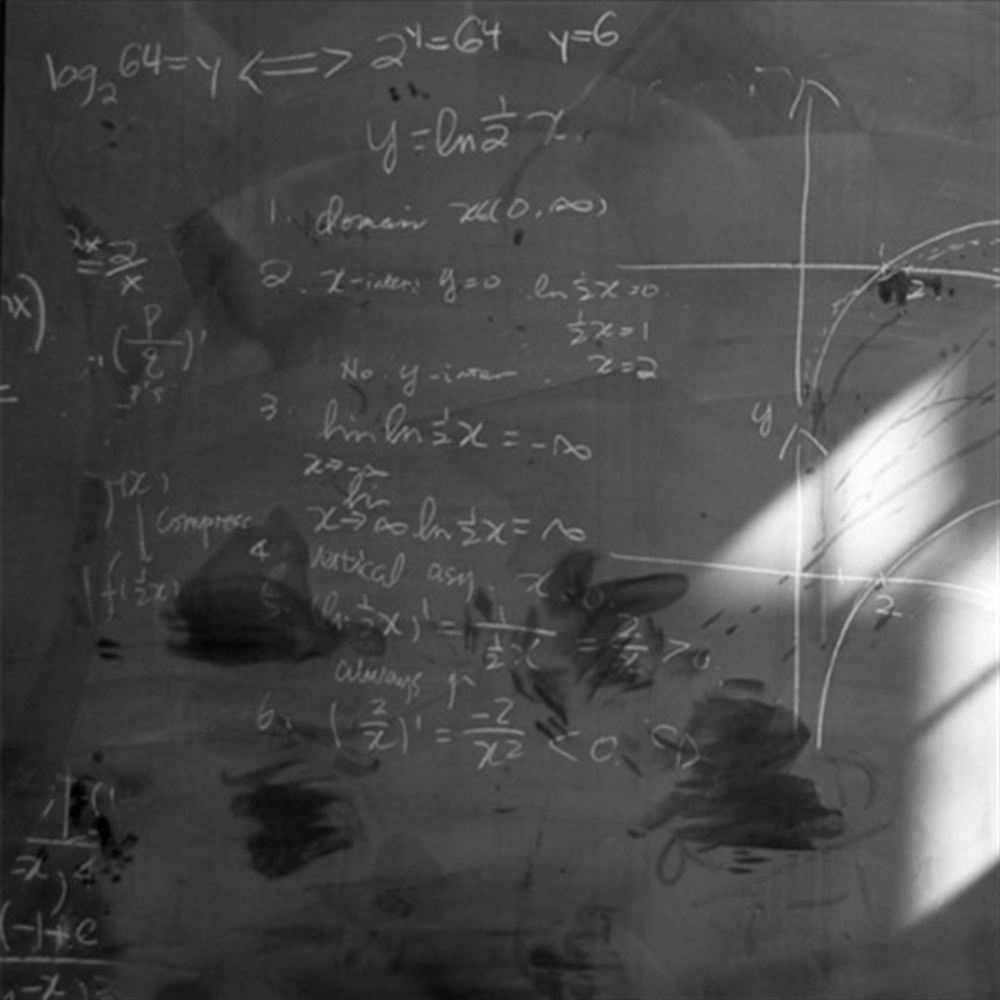 log₂64=y ⟺ 2^y=64 y=6
y=ln 1/2 x
1. domain x∈(0,∞)
2. x-inter: y=0 ln 1/2 x=0
1/2 x=1
x=2
No y-inter
3. lim ln 1/2 x = -∞
x→-∞
lim
x→∞ ln 1/2 x = ∞
4. vertical asy. x 0
5. ln 1/2 x)' = 1/(1/2 x = 2/x >0
always
6. (2/x)' = -2/x² <0.
2/x
(p/q)'
f(x)
compress
f(1/2 x)
nx)
(-1+e
1
2
y
2